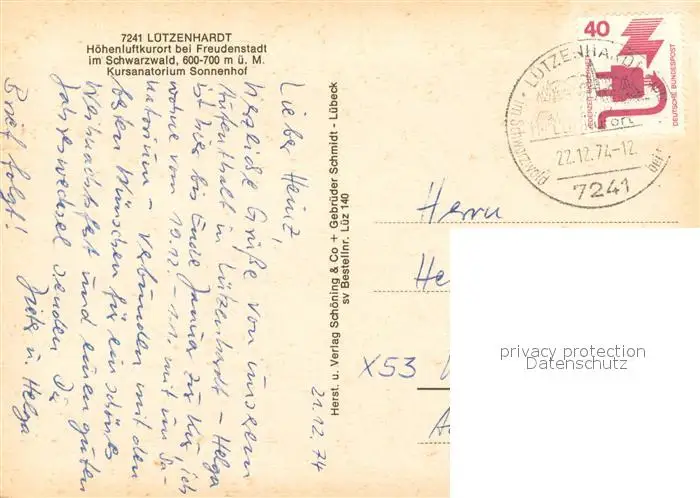 7241 LÜTZENHARDT
Höhenluftkurort bei Freudenstadt
im Schwarzwald, 600-700 m ü. M.
Kursanatorium Sonnenhof
21.12.74
Lieber Heinz,
herzliche Grüße von unserem
Aufenthalt in Lützenhardt - Helga
ist hier bis Ende Januar zur Kur, ich
wohne vom 19.12. - 1.1. mit im Sa-
natorium - Verbunden mit den
besten Wünschen für ein schönes
Weihnachtsfest und einen guten
Jahreswechsel senden Dir
u. Helga
Brief folgt!
Herst. u. Verlag Schöning & Co + Gebrüder Schmidt - Lübeck
sv Bestellnr. Lüz 140
40
DEUTSCHE BUNDESPOST
LÜTZENHARDT
im Schwarzwald
22.12.74-12
7241
Herrn
He
X53
privacy protection
Datenschutz